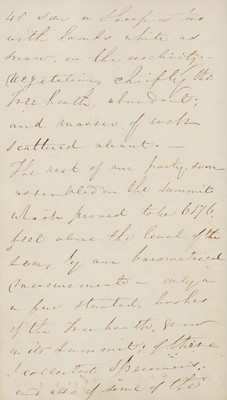 us saw a sheep or two
with lambs white as
snow, on the acclivity. -
Vegetation, chiefly the
tree heath, abundant;
and masses of rock
scattered about. -
The rest of our party, soon
assembled on the summit
which proved to be 6176
feet above the level of the
sea, by our barometrical
measurement - only a
a few stunted bushes
of the tree heath, grew
on its summit; of these
I collected specimens,
and also of some of the